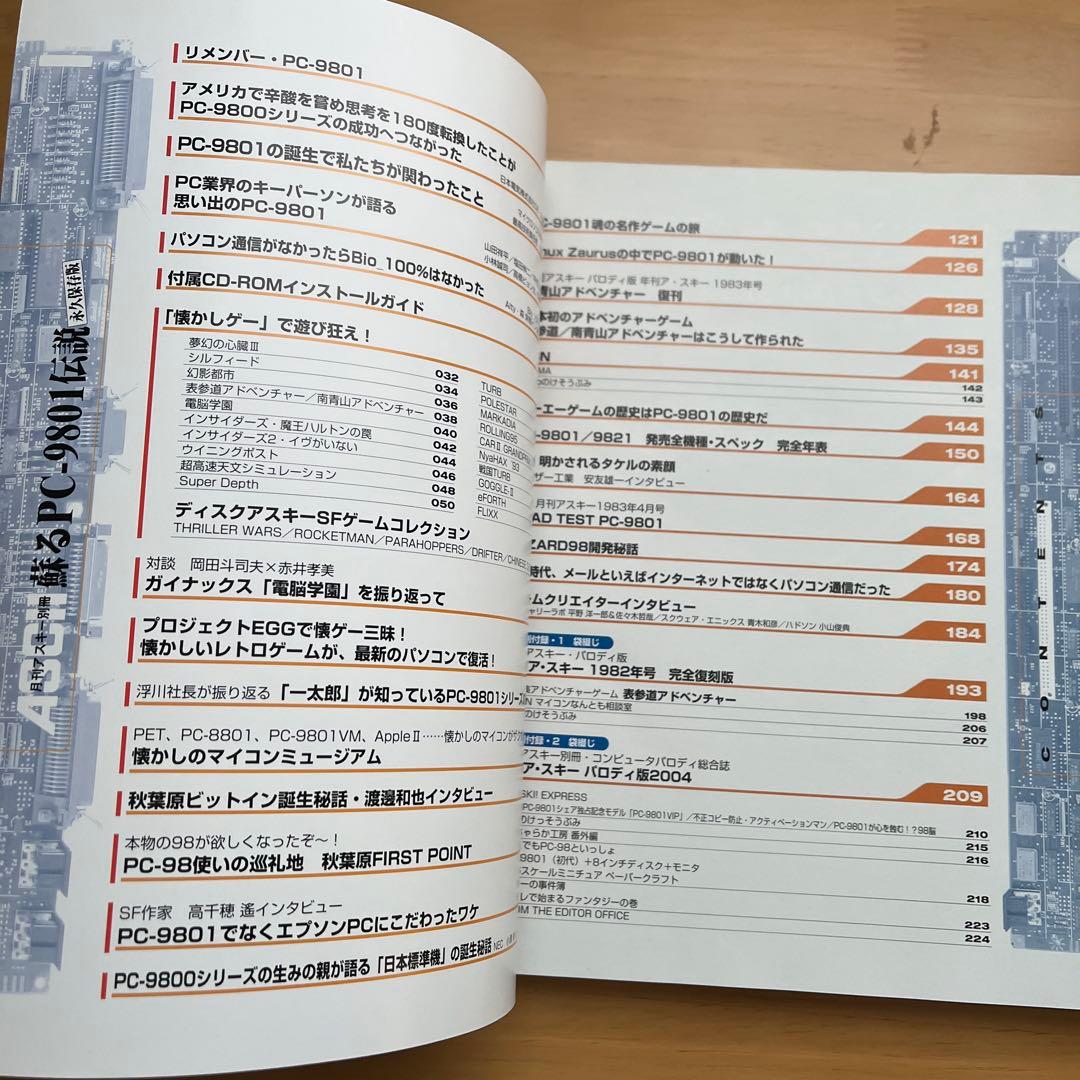 月刊アスキー別冊
蘇るPC-9801伝説
永久保存版
リメンバー・PC-9801
アメリカで辛酸を嘗め思考を180度転換したことが
PC-9800シリーズの成功へつながった
PC-9801の誕生で私たちが関わったこと
PC業界のキーパーソンが語る
思い出のPC-9801
パソコン通信がなかったらBio_100%はなかった
付属CD-ROMインストールガイド
「懐かしゲー」で遊び狂え！
夢幻の心臓Ⅲ 032
シルフィード 034
幻影都市 036
表参道アドベンチャー／南青山アドベンチャー 038
電脳学園 040
インサイダーズ・魔王ハルトンの罠 042
インサイダーズ2・イヴがいない 044
ウイニングポスト 046
超高速天文シミュレーション 048
Super Depth 050
TURB
POLESTAR
MARKADIA
ROLLING95
CARⅡ GRANDPRI
NyaHAX '93
戦国TURB
GOGGLE-Ⅱ
eFORTH
FLIXX
ディスクアスキーSFゲームコレクション
THRILLER WARS／ROCKETMAN／PARAHOPPERS／DRIFTER／CHINESE
対談 岡田斗司夫×赤井孝美
ガイナックス「電脳学園」を振り返って
プロジェクトEGGで懐ゲー三昧！
懐かしいレトロゲームが、最新のパソコンで復活！
浮川社長が振り返る「一太郎」が知っているPC-9801シリーズ
PET、PC-8801、PC-9801VM、AppleⅡ……懐かしのマイコンが
懐かしのマイコンミュージアム
秋葉原ビットイン誕生秘話・渡邊和也インタビュー
本物の98が欲しくなったぞ〜！
PC-98使いの巡礼地 秋葉原FIRST POINT
SF作家 高千穂 遙インタビュー
PC-9801でなくエプソンPCにこだわったワケ
PC-9800シリーズの生みの親が語る「日本標準機」の誕生秘話 NEC
C-9801魂の名作ゲームの旅
121
ux Zaurusの中でPC-9801が動いた！
126
アスキー パロディ版 年刊ア・スキー 1983年号
青山アドベンチャー 復刊
128
本初のアドベンチャーゲーム
参道／南青山アドベンチャーはこうして作られた
135
N
141
MA
142
のけそうぶみ
143
ーエーゲームの歴史はPC-9801の歴史だ
144
-9801／9821 発売全機種・スペック 完全年表
150
明かされるタケルの素顔
ザー工業 安友雄一インタビュー
164
月刊アスキー1983年4月号
AD TEST PC-9801
168
ZARD98開発秘話
174
時代、メールといえばインターネットではなくパソコン通信だった
180
ームクリエイターインタビュー
ャリーラボ 平野 洋一郎&佐々木哲哉／スクウェア・エニックス 青木和彦／ハドソン 小山俊典
184
付録・1 袋綴じ
アスキー・パロディ版
ア・スキー 1982年号 完全復刻版
193
アドベンチャーゲーム 表参道アドベンチャー
198
IN マイコンなんとも相談室
206
のけそうぶみ
207
付録・2 袋綴じ
アスキー別冊・コンピュータパロディ総合誌
ア・スキー パロディ版2004
209
SKI! EXPRESS
PC-9801シェア独占記念モデル「PC-9801VIP」／不正コピー防止・アクティベーションマン／PC-9801が心を蝕む！？98脳
210
のけっそうぶみ
215
ちゃらか工房 番外編
216
でもPC-98といっしょ
9801（初代）+8インチディスク+モニタ
スケールミニチュア ペーパークラフト
218
ーの事件簿
レで始まるファンタジーの巻
223
OM THE EDITOR OFFICE
224
CONTENTS